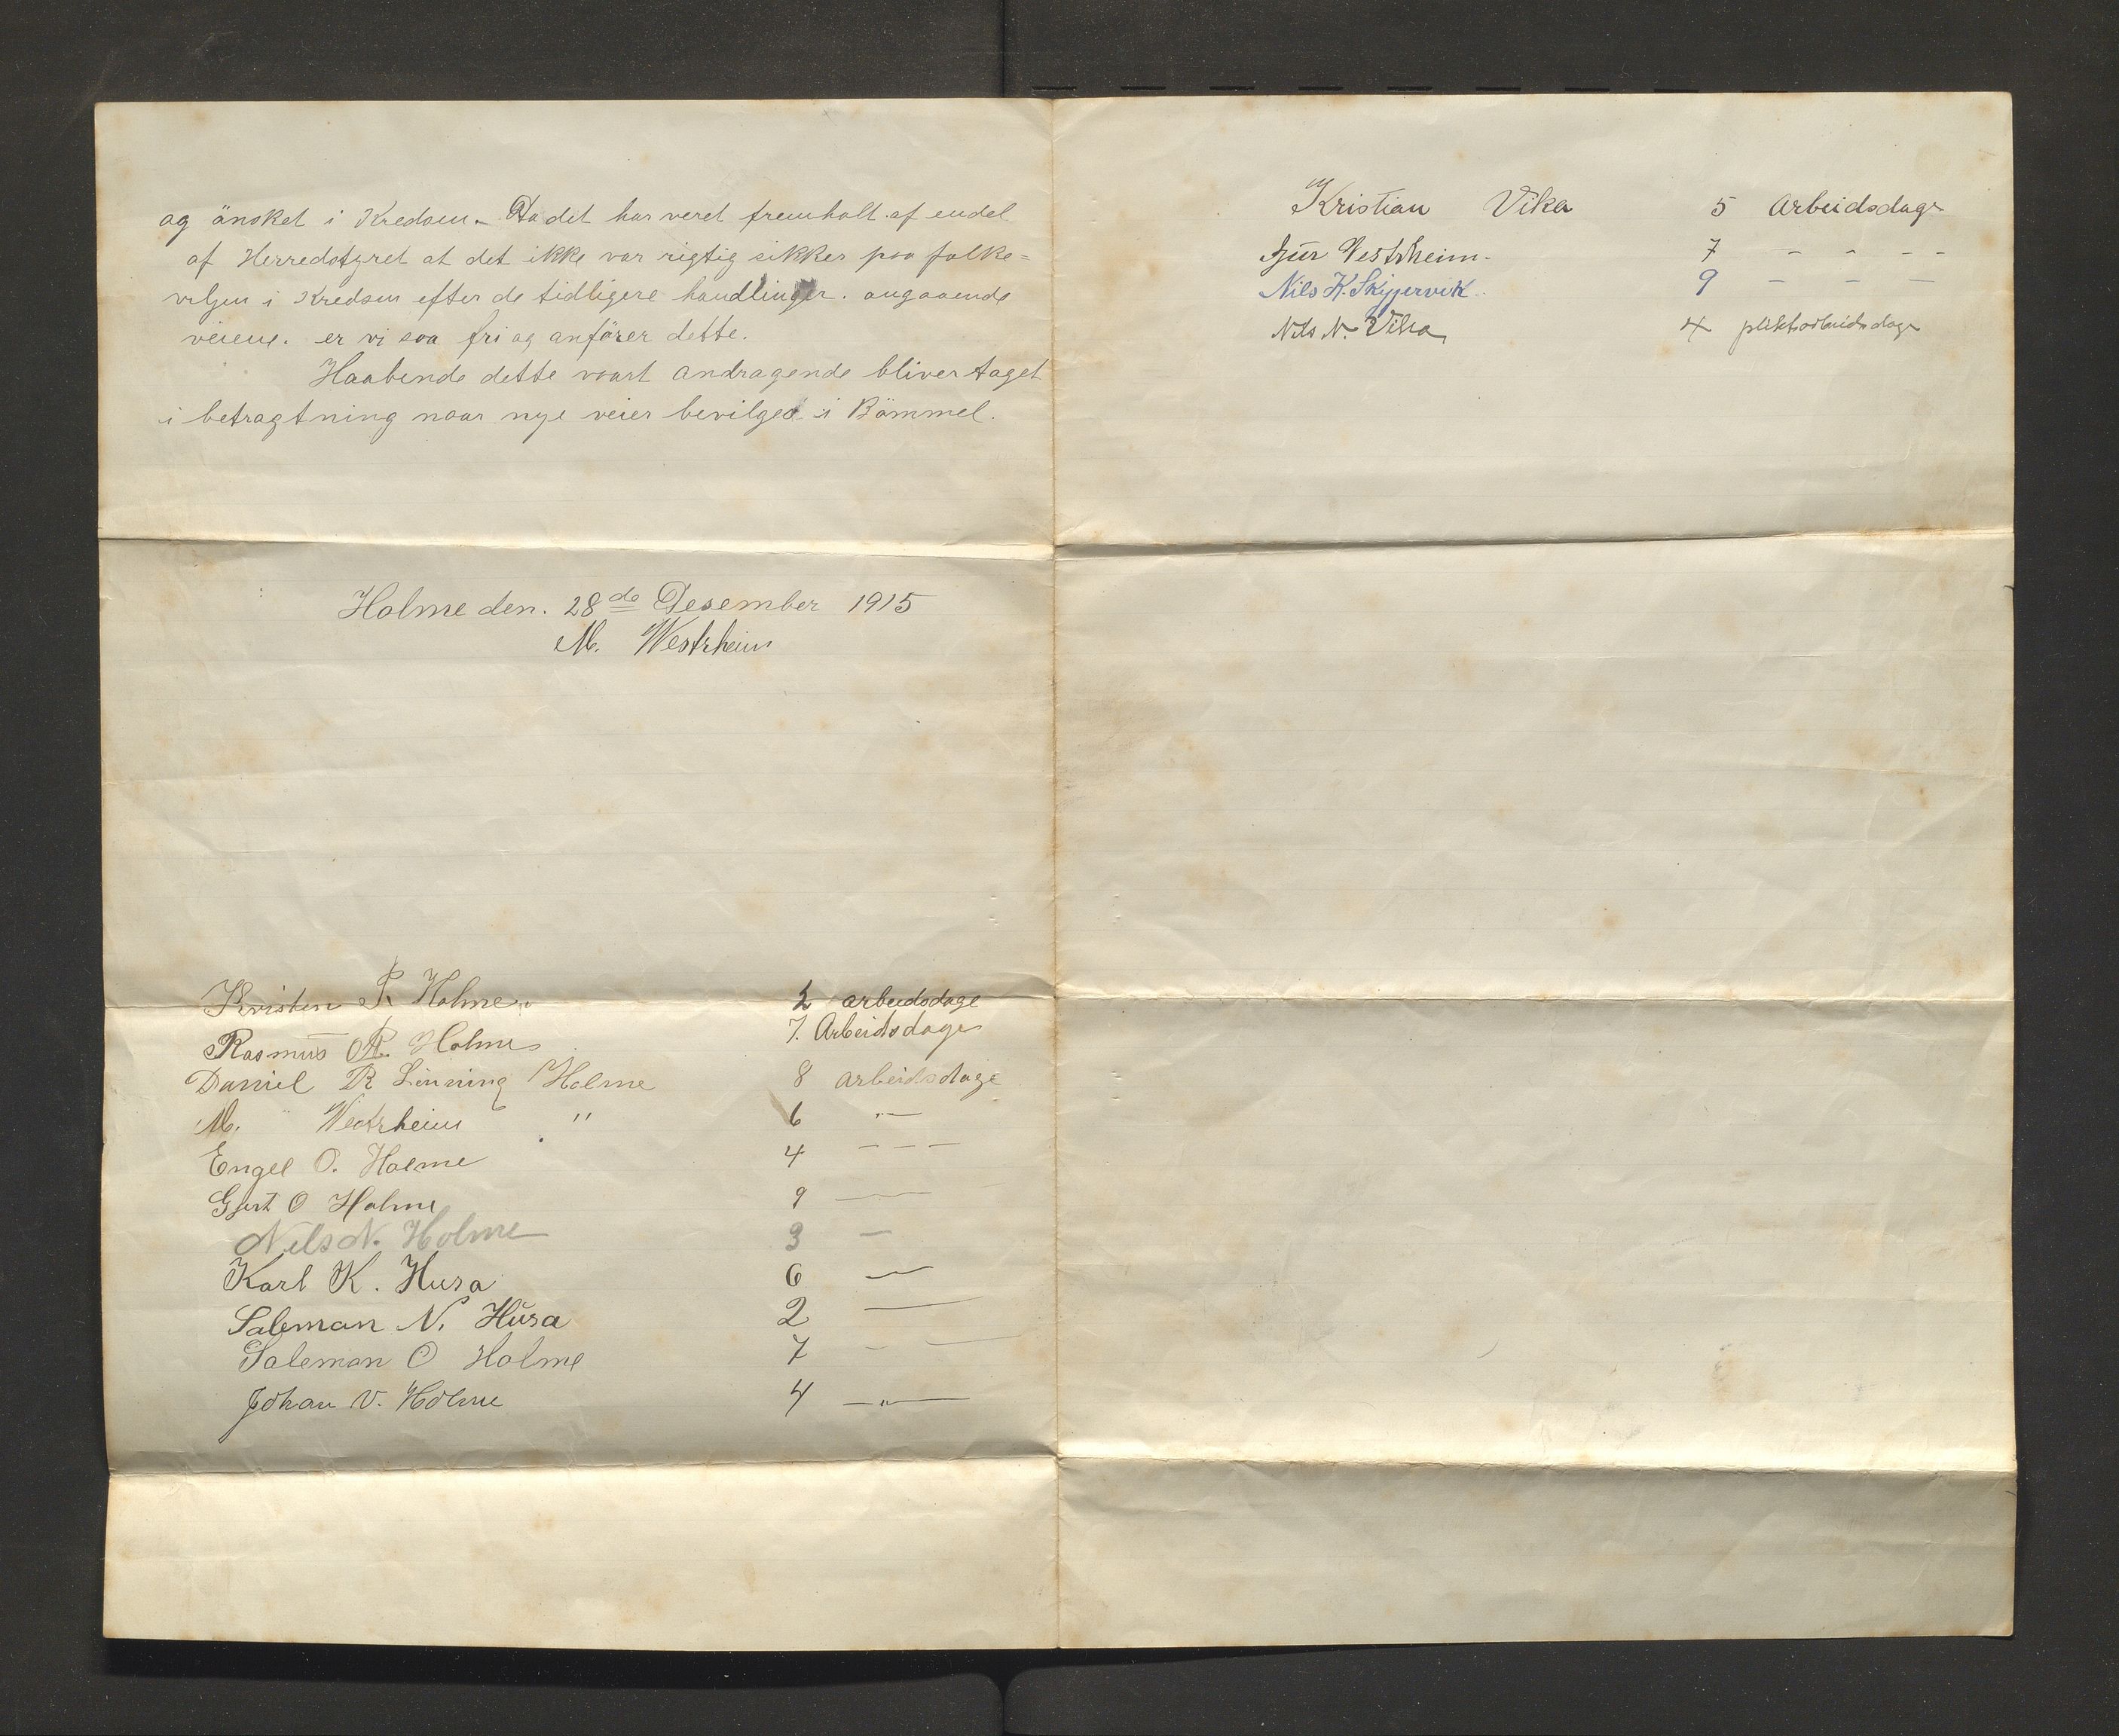 og önsket i Kredsen. Da det har veret fremholt af endel
af Herredstyret at det ikke var rigtig sikker paa folke=
viljen i Kredsen efter de tidligere handlinger. angaaende
veiene. er vi saa fri og anförer dette.
Haabende dette vaart andragende bliver taget
i betragtning naar nye veier bevilges i Bömmel.
Holme den. 28de Desember 1915
M. Westrheim
Kristen R Holme 2 arbeidsdage
Rasmus R. Holme 7. Arbeidsdage
Daniel R Linning Holme 8 arbeidsdage
M. Westrheim " 6 "
Engel O. Holme 4 - - -
Gjert O Holme 9 —
Nils N. Holme 3 —
Karl K. Husa 6 —
Salemon N. Husa 2 —
Salemon O Holme 7 - —
Johan V. Holme 4 —"—
Kristian Vika 5 Arbeidsdage
Sjur Vestrheim. 7 - - - -
Nils K. Skjervik.. 9 - - -
Nils N. Vika 4 pliktarbeidsdage